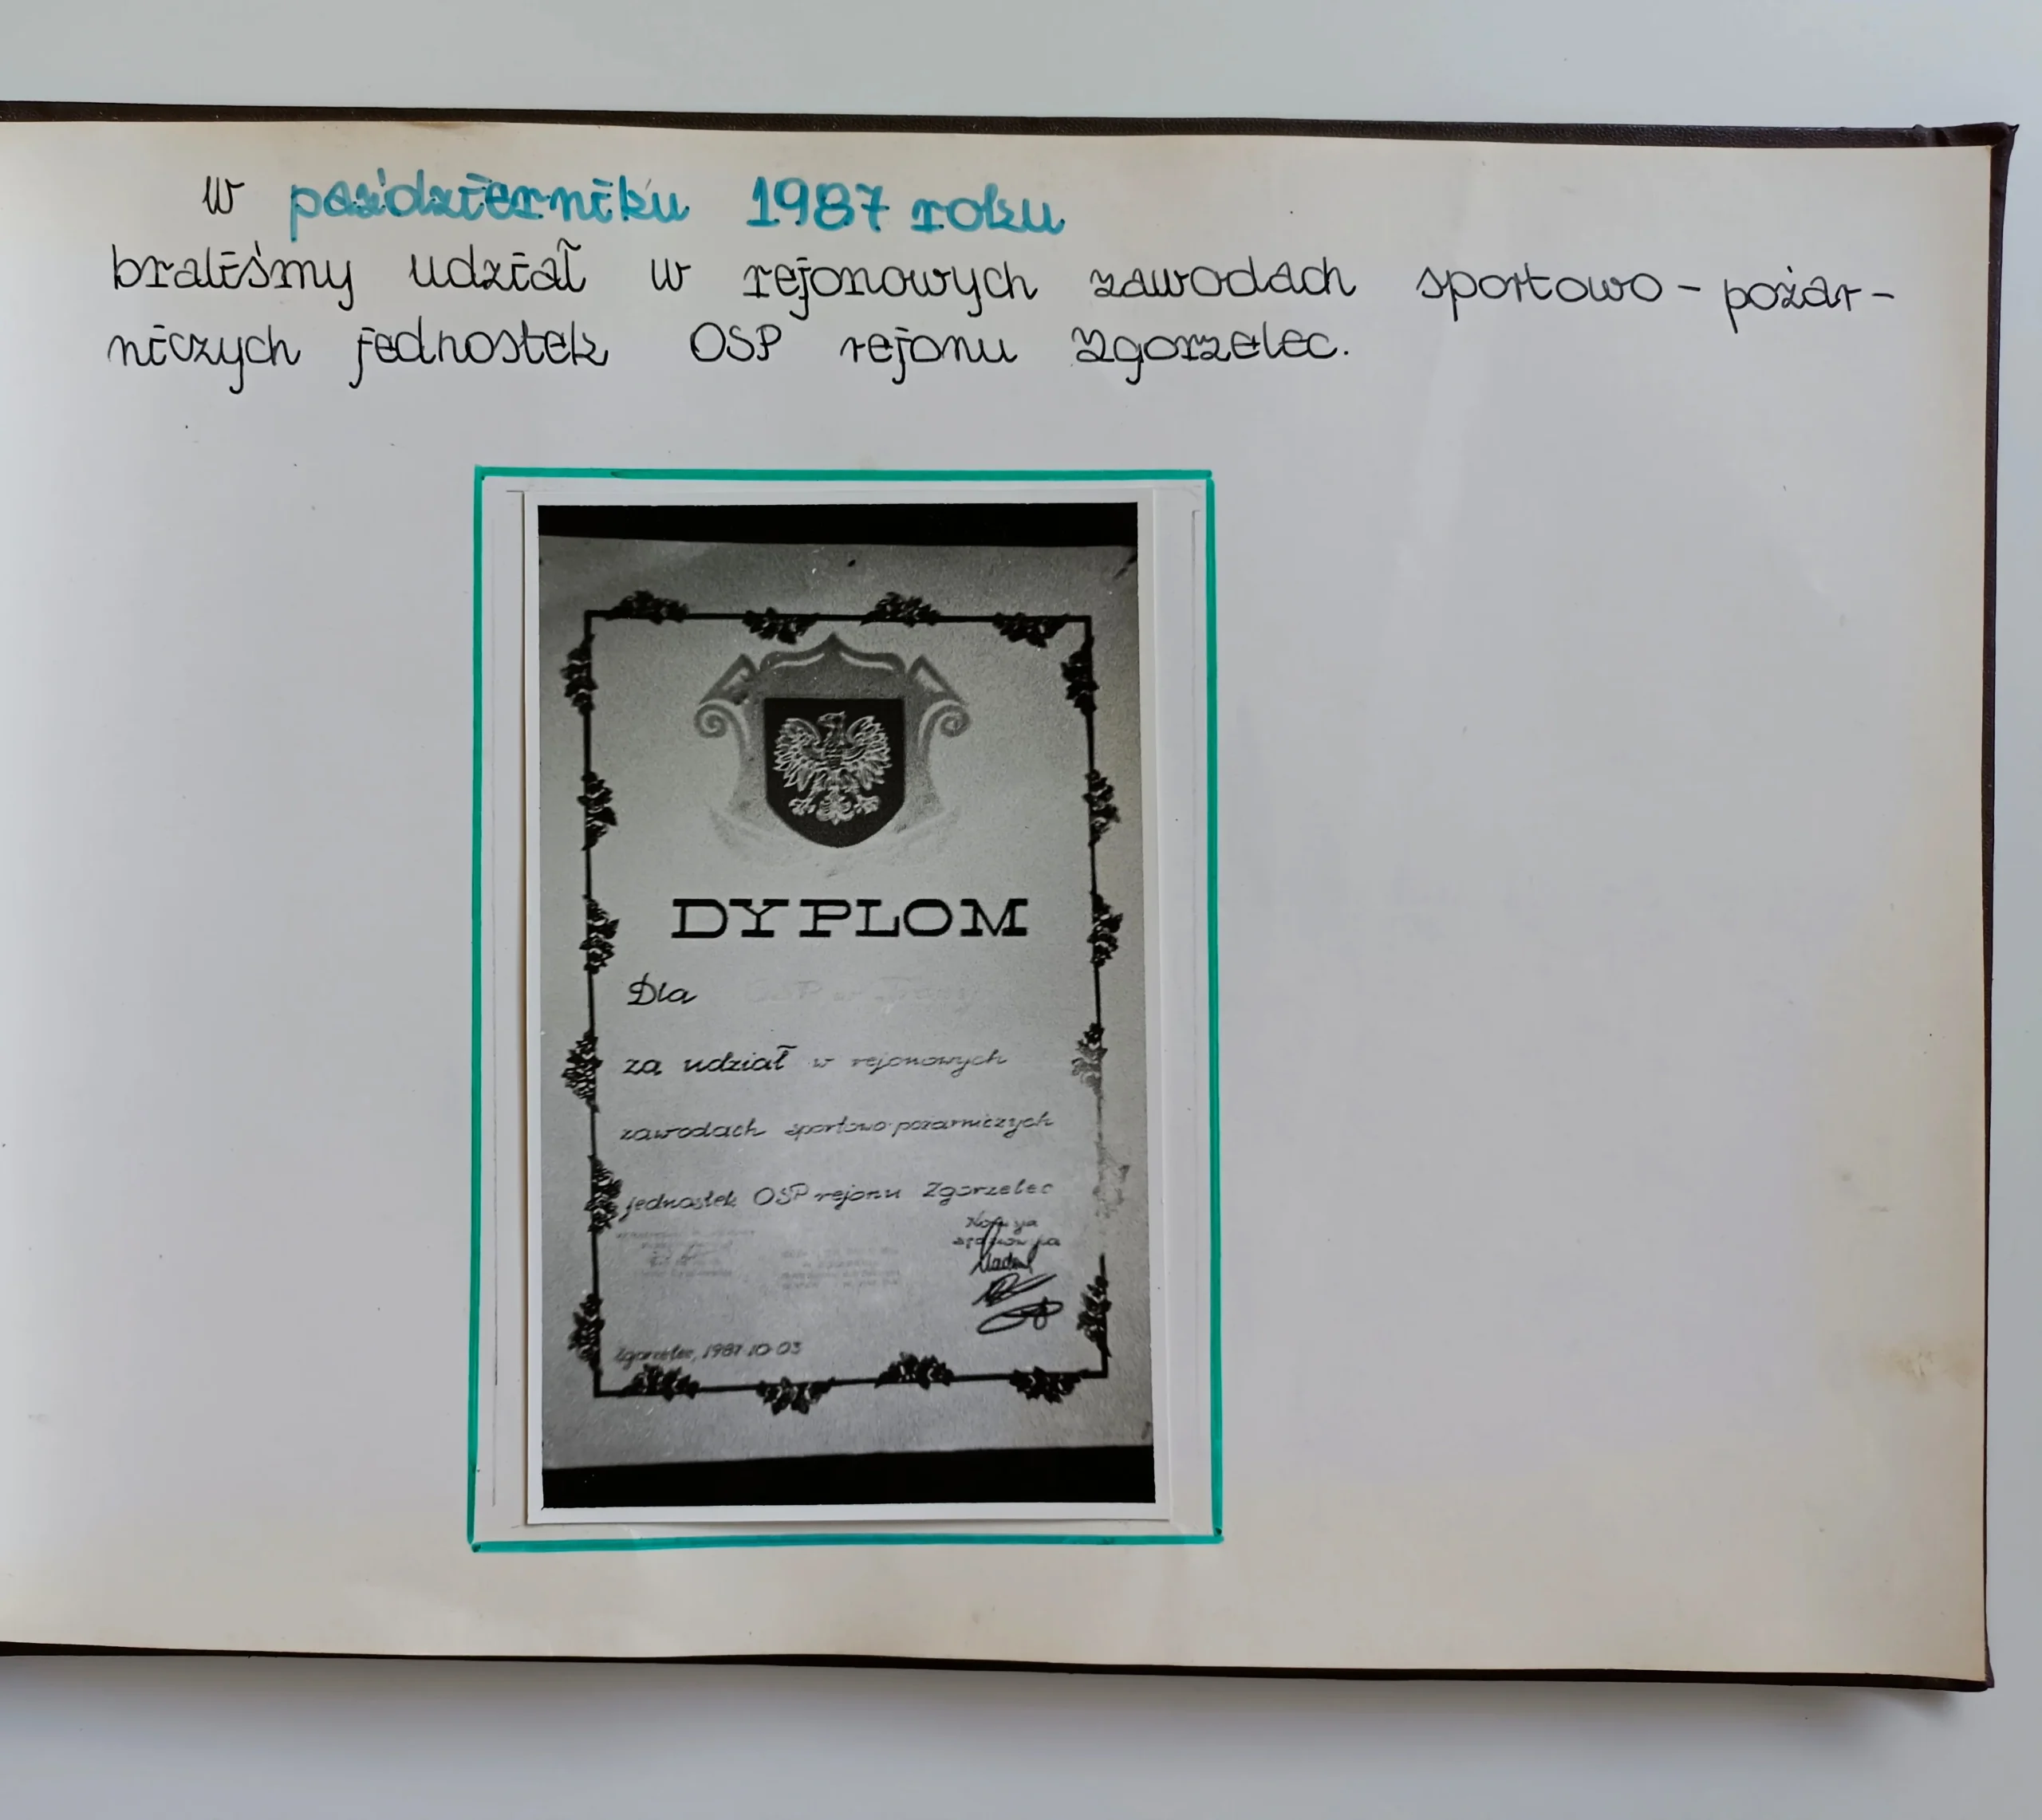 w październiku 1987 roku
braliśmy udział w rejonowych zawodach sportowo-pożar-
niczych jednostek OSP rejonu Zgorzelec.
DYPLOM
Dla OSP w
za udział w rejonowych
zawodach sportowo-pożarniczych
jednostek OSP rejonu Zgorzelec
Zgorzelec, 1987-10-03